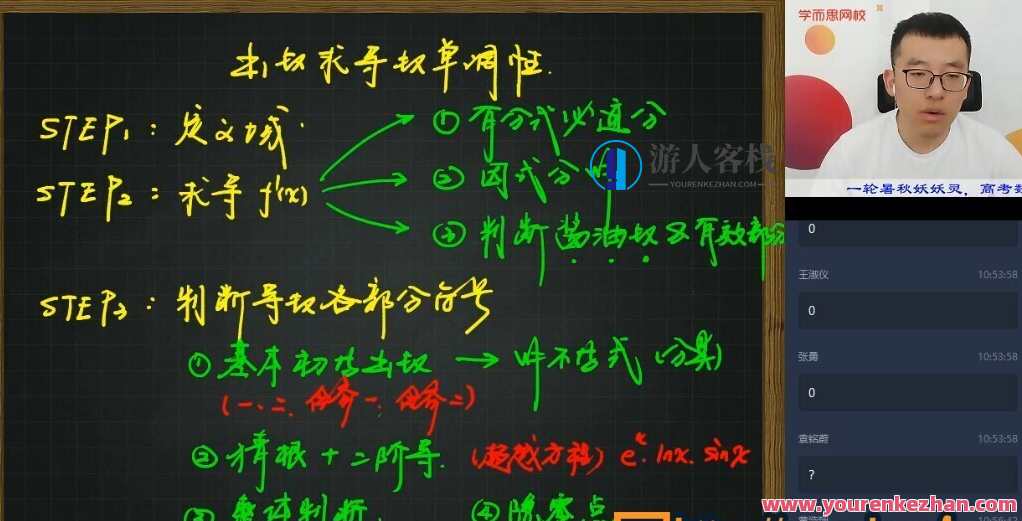 求导
单调性.
STEP1: 定义域.
① 有分式必通分
STEP2: 求导 f'(x)
② 因式分
③ 判断酱油 有效部分
STEP3: 判断导 各部分符号
① 基本初 → 不 式 (分类)
(一、二、
② 猜根 + 二阶导. (超越方程) e^x. lnx. sinx
③ 整体判断
④ 隐零点
游人客栈
YOURENKEZHAN.COM
学而思网校
一轮暑秋妖妖灵，高考数
0
王淑仪 10:53:58
0
张勇 10:53:58
0
袁铭蔚 10:53:58
?
www.yourenkezhan.com